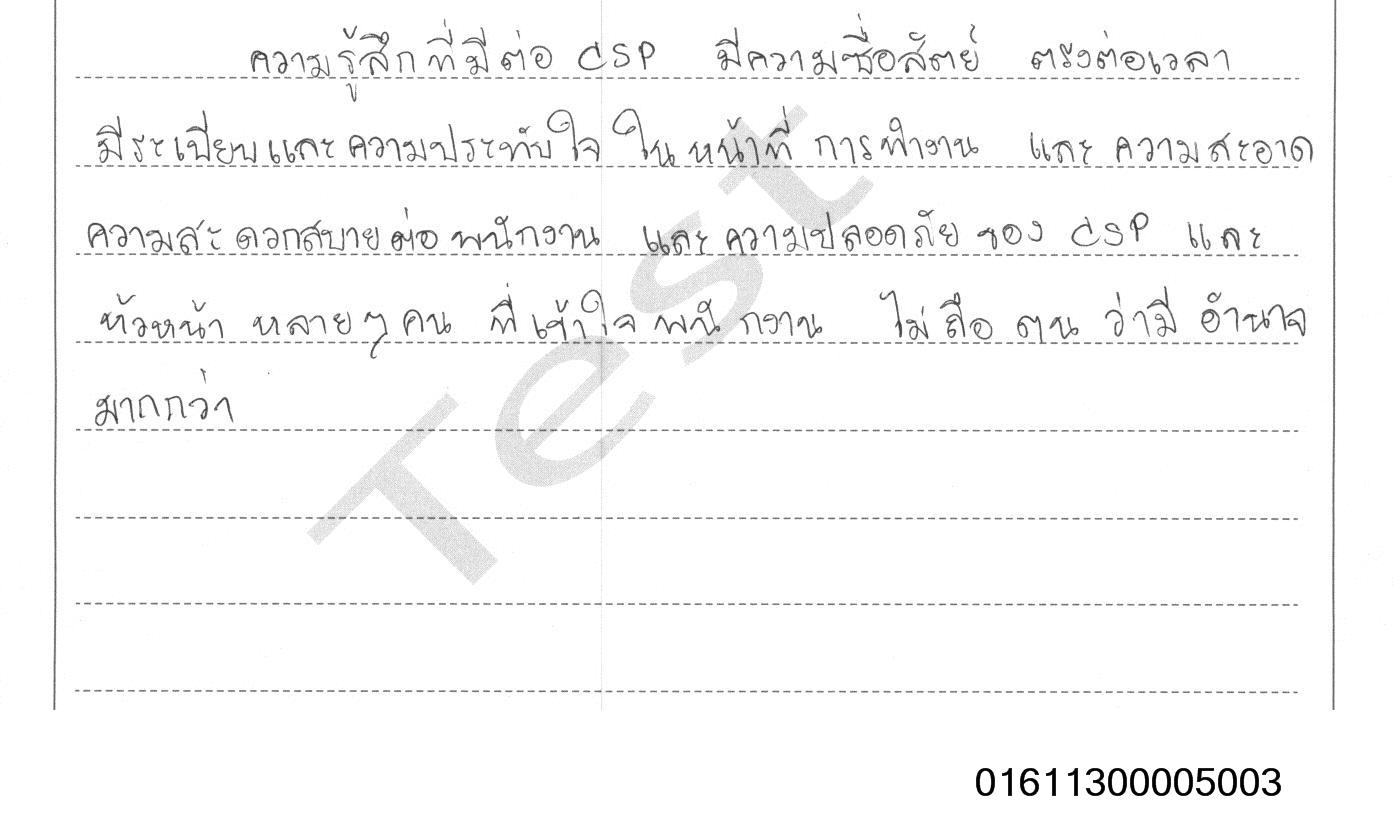 ความรู้สึกที่มีต่อ CSP มีความซื่อสัตย์ ตรงต่อเวลา
มีระเบียบและความประทับใจ ในหน้าที่ การทำงาน และ ความสะอาด
ความสะดวกสบายต่อพนักงาน และความปลอดภัย ของ CSP และ
หัวหน้า หลายๆคน ที่เข้าใจพนักงาน ไม่ถือ ตน ว่ามี อำนาจ
มากกว่า
Test
01611300005003